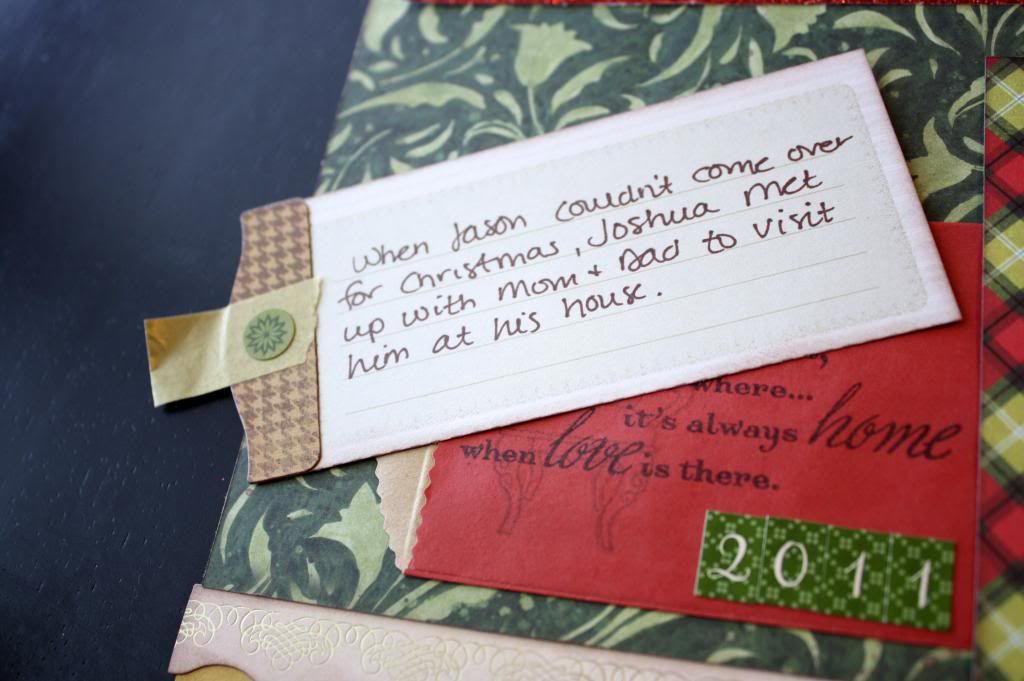 when Jason couldn't come over
for Christmas, Joshua met
up with Mom + Dad to visit
him at his house.
where...
it's always home
when love is there.
2011